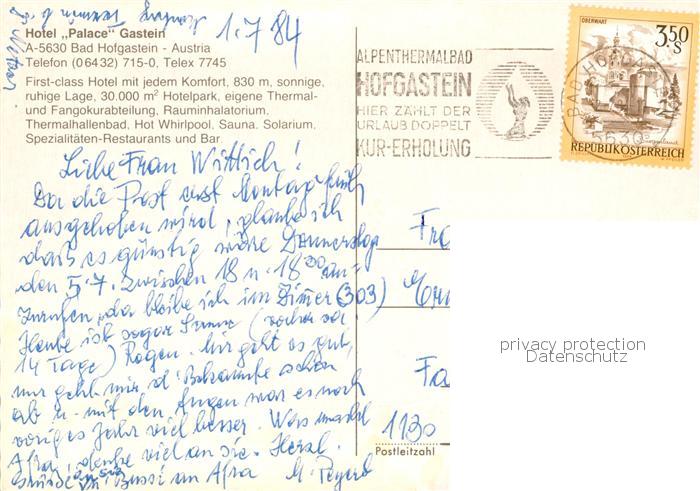 1.7.84
Hotel „Palace“ Gastein
A-5630 Bad Hofgastein - Austria
Telefon (06432) 715-0, Telex 7745
First-class Hotel mit jedem Komfort, 830 m, sonnige,
ruhige Lage, 30.000 m² Hotelpark, eigene Thermal-
und Fangokurabteilung, Rauminhalatorium,
Thermalhallenbad, Hot Whirlpool, Sauna, Solarium,
Spezialitäten-Restaurants und Bar
ALPENTHERMALBAD
HOFGASTEIN
HIER ZÄHLT DER
URLAUB DOPPELT
KUR-ERHOLUNG
OBERWART
3.50 S
REPUBLIK ÖSTERREICH
BAD HOFGASTEIN
5630
Liebe Frau Wittlich!
Da die Post erst Montag früh
ausgehoben wird, glaube ich
daß es günstig wäre Donnerstag
den 5.7. zwischen 18 u. 18³⁰ an-
zurufen, da bleibe ich im Zimmer (303)
Heute ist sogar Sonne (vorher
14 Tage) Regen. Mir geht es gut,
nur geht mir d. Bekannte schon
ab u. mit den Augen war es noch
voriges Jahr viel besser. Was macht
Afra, denke viel an sie. Herzl.
Bussi an Afra
Fra
Fa
1130
Postleitzahl
privacy protection
Datenschutz